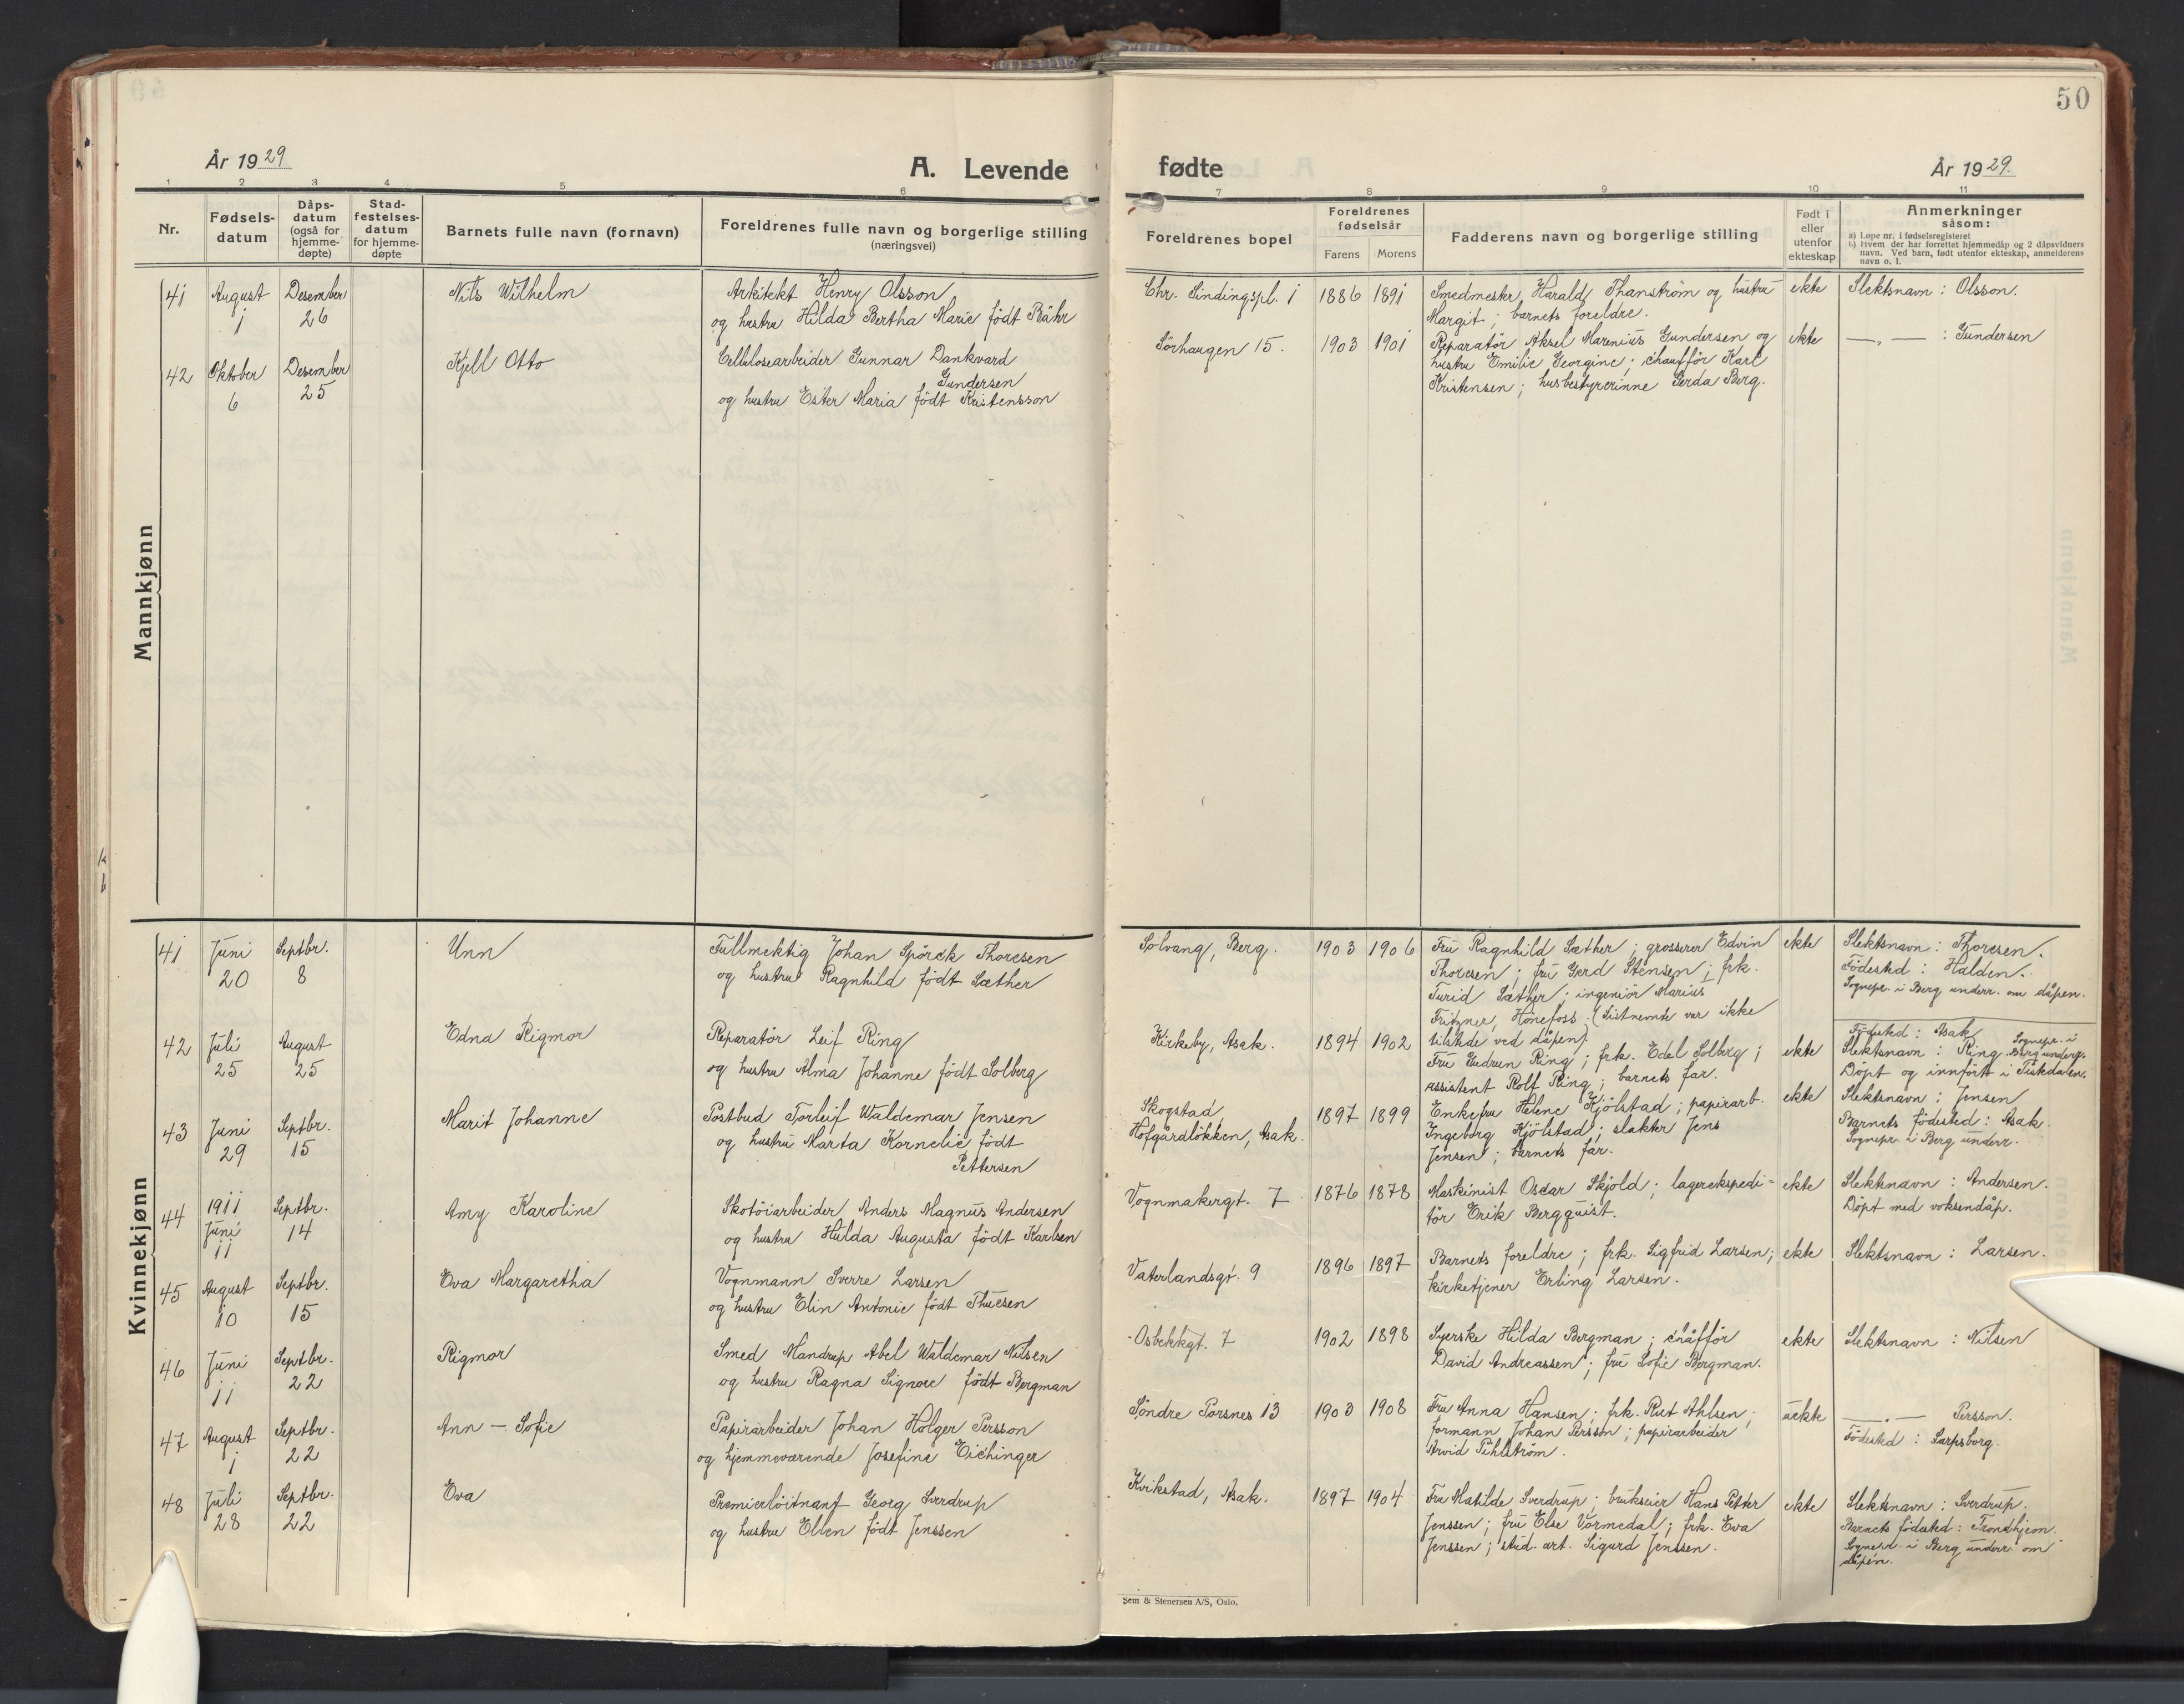 50
År 1929
A. Levende fødte
År 1929.
1 2 3 4 5 6 7 8 9 10 11
Nr.
Fødsels-
datum
Dåps-
datum
(også for
hjemme-
døpte)
Stad-
festelses-
datum
for hjemme-
døpte
Barnets fulle navn (fornavn)
Foreldrenes fulle navn og borgerlige stilling
(næringsvei)
Foreldrenes bopel
Foreldrenes
fødselsår
Farens Morens
Fadderens navn og borgerlige stilling
Født i
eller
utenfor
ekteskap
Anmerkninger
såsom:
a) Løpe nr. i fødselsregisteret
b) Hvem der har forrettet hjemmedåp og 2 dåpsvidners
navn. Ved barn, født utenfor ekteskap, anmelderens
navn o. l.
Mannkjønn
41
August
1
Desember
26
Nils Wilhelm
Arkitekt Henry Olsson
og hustru Hilda Bertha Marie født Bähr
Chr. Sindingspl. 1
1886 1891
Smedmester Harald Thanström og hustru
Margit; barnets foreldre.
ekte
Slektsnavn: Olsson.
42
Oktober
6
Desember
25
Kjell Otto
Cellulosearbeider Gunnar Dankvard
Gundersen
og hustru Ester Maria født Kristensson
Sörhaugen 15.
1903 1901
Reparatör Aksel Marenius Gundersen og
hustru Emilie Georgine; chaufför Karl
Kristensen; husbestyrerinne Gerda Berg.
ekte
—„— : Gundersen
Kvinnekjønn
41
Juni
20
Septbr.
8
Unn
Fullmektig Johan Spörck Thoresen
og hustru Ragnhild født Sæther
Solvang, Berg.
1903 1906
Fru Ragnhild Sæther; grosserer Edvin
Thoresen; fru Gerd Stensen; frk.
Turid Sæther; ingeniör Marius
Fritzner, Hönefoss. (Sistnevnte var ikke
tilstede ved dåpen).
ekte
Slektsnavn: Thoresen.
Födested: Halden.
Sognepr. i Berg underr. om dåpen.
42
Juli
25
August
25
Edna Rigmor
Reparatör Leif Ring
og hustru Alma Johanne født Solberg
Kirkeby, Asak.
1894 1902
Fru Gudrun Ring; frk. Edel Solberg;
assistent Rolf Ring; barnets far.
ekte
Födested: Asak. Sognepr. i
Slektsnavn: Ring. Berg underr.
Döpt og innfört i Tistedalen.
43
Juni
29
Septbr.
15
Marit Johanne
Postbud Torleif Waldemar Jensen
og hustru Marta Kornelie født
Pettersen
Skogstad
Hofgårdlökken, Asak.
1897 1899
Enkefru Helene Kjölstad; papirarb.
Ingeborg Kjölstad; slakter Jens
Jensen; barnets far.
ekte
Slektsnavn: Jensen
Barnets födested: Asak.
Sognepr. i Berg underr.
44
1911
Juni
11
Septbr.
14
Amy Karoline
Skotöiarbeider Anders Magnus Andersen
og hustru Hulda Augusta født Karlsen
Vognmakergt. 7
1876 1878
Maskinist Oscar Skjold; lagerekspedi-
tör Erik Bergquist.
ekte
Slektsnavn: Andersen.
Döpt med voksendåp.
45
August
10
Septbr.
15
Eva Margaretha
Vognmann Sverre Larsen
og hustru Elin Antonie født Thuesen
Vaterlandsgt. 9
1896 1897
Barnets foreldre; frk. Sigfrid Larsen;
kirketjener Erling Larsen.
ekte
Slektsnavn: Larsen.
46
Juni
11
Septbr.
22
Rigmor
Smed Mandrup Abel Waldemar Nilsen
og hustru Ragna Signore født Bergman
Osbekkgt. 7
1902 1898
Syerske Hilda Bergman; chåfför
David Andreassen; fru Sofie Bergman.
ekte
Slektsnavn: Nilsen
47
August
1
Septbr.
22
Ann – Sofie
Papirarbeider Johan Holger Persson
og hjemmeværende Josefine Eichinger
Söndre Porsnes 13
1903 1908
Fru Anna Hansen; frk. Rut Ahlsen;
formann Johan Persson; papirarbeider
Arvid Pihlström.
uekte
—„— Persson.
Födested: Sarpsborg.
48
Juli
28
Septbr.
22
Eva
Premierlöitnant Georg Sverdrup
og hustru Ellen født Jenssen
Kvikstad, Asak.
1897 1904
Fru Matilde Sverdrup; brukseier Hans Petter
Jenssen; fru Else Vormedal; frk. Eva
Jenssen; stud. art. Sigurd Jenssen.
ekte
Slektsnavn: Sverdrup.
Barnets födested: Trondhjem.
Sognepr. i Berg underr. om
dåpen.
Sem & Stenersen A/S, Oslo.